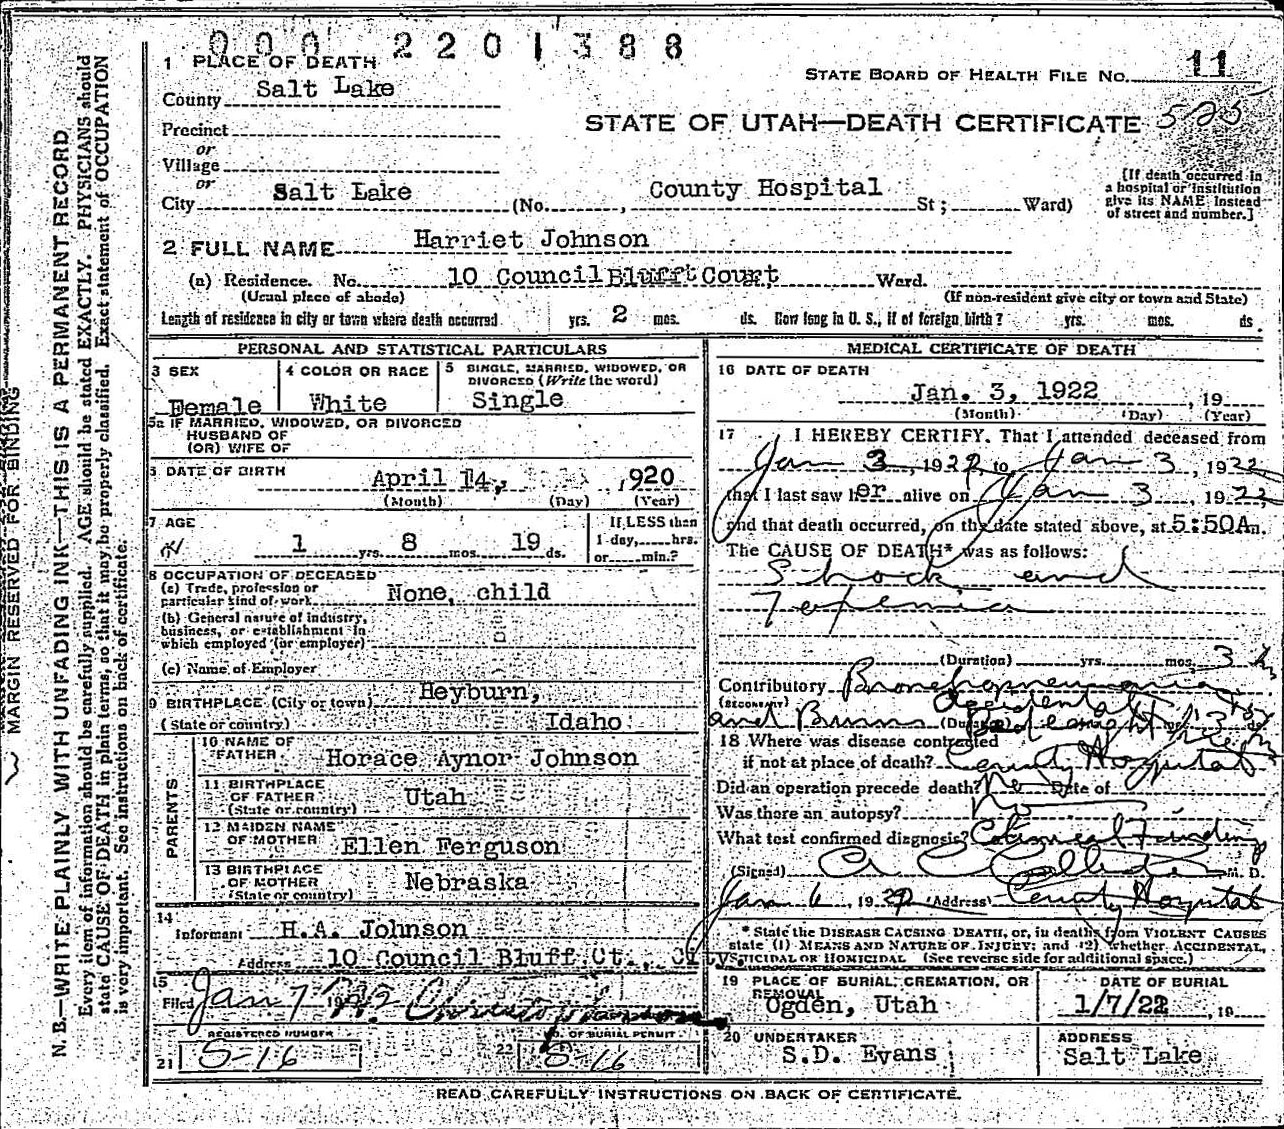 000 2201388
1 PLACE OF DEATH
STATE BOARD OF HEALTH FILE NO. 11
County Salt Lake
525
STATE OF UTAH—DEATH CERTIFICATE
Precinct
or
Village
or
City Salt Lake (No. , County Hospital St; Ward)
[If death occurred in
a hospital or institution
give its NAME instead
of street and number.]
2 FULL NAME Harriet Johnson
(a) Residence. No. 10 Council Blufft Court Ward.
(Usual place of abode)
(If non-resident give city or town and State)
Length of residence in city or town where death occurred yrs. 2 mos. ds. How long in U. S., if of foreign birth? yrs. mos. ds.
PERSONAL AND STATISTICAL PARTICULARS
3 SEX
Female
4 COLOR OR RACE
White
5 SINGLE, MARRIED, WIDOWED, OR
DIVORCED (Write the word)
Single
5a IF MARRIED, WIDOWED, OR DIVORCED
HUSBAND OF
(OR) WIFE OF
6 DATE OF BIRTH
April 14, 1920
(Month) (Day) (Year)
7 AGE
1 yrs. 8 mos. 19 ds.
If LESS than
1 day, hrs.
or min.?
8 OCCUPATION OF DECEASED
(a) Trade, profession or
particular kind of work None, child
(b) General nature of industry,
business, or establishment in
which employed (or employer)
(c) Name of Employer
9 BIRTHPLACE (City or town) Heyburn,
(State or country) Idaho
PARENTS
10 NAME OF
FATHER Horace Aynor Johnson
11 BIRTHPLACE
OF FATHER
(State or country) Utah
12 MAIDEN NAME
OF MOTHER Ellen Ferguson
13 BIRTHPLACE
OF MOTHER
(State or country) Nebraska
14
Informant H.A. Johnson
Address 10 Council Bluff Ct., City.
15
Filed Jan 7 192
REGISTERED NUMBER
21 5-16
22 NO. OF BURIAL PERMIT
5-16
MEDICAL CERTIFICATE OF DEATH
16 DATE OF DEATH
Jan. 3, 1922 , 19
(Month) (Day) (Year)
17 I HEREBY CERTIFY, That I attended deceased from
Jan 3, 1922, to Jan 3, 1922
that I last saw her alive on Jan 3 1922,
and that death occurred, on the date stated above, at 5:50A m.
The CAUSE OF DEATH* was as follows:
Shock and
Toxemia
(Duration) yrs. mos. 3
Contributory Bronchopneumonia
(SECONDARY) accidental
and Burns (Duration)
18 Where was disease contracted
if not at place of death? County Hospital
Did an operation precede death? No Date of
Was there an autopsy? No
What test confirmed diagnosis? Clinical Finding
(Signed) M. D.
Jan 6, 1922 (Address) County Hospital
* State the DISEASE CAUSING DEATH, or, in deaths from VIOLENT CAUSES
state (1) MEANS AND NATURE OF INJURY; and (2) whether ACCIDENTAL,
SUICIDAL OR HOMICIDAL (See reverse side for additional space.)
19 PLACE OF BURIAL, CREMATION, OR
REMOVAL
Ogden, Utah
DATE OF BURIAL
1/7/22 , 19
20 UNDERTAKER
S.D. Evans
ADDRESS
Salt Lake
READ CAREFULLY INSTRUCTIONS ON BACK OF CERTIFICATE.
MARGIN RESERVED FOR BINDING
N. B.—WRITE PLAINLY, WITH UNFADING INK—THIS IS A PERMANENT RECORD
Every item of information should be carefully supplied. AGE should be stated EXACTLY. PHYSICIANS should
state CAUSE OF DEATH in plain terms, so that it may be properly classified. Exact statement of OCCUPATION
is very important. See instructions on back of certificate.